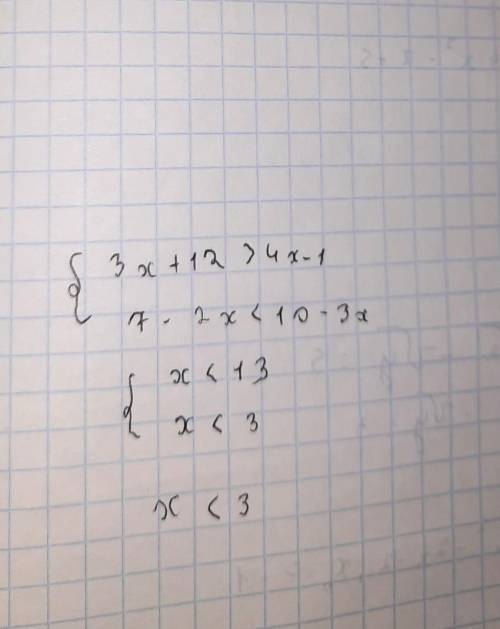 { 3x + 12 > 4x - 1
7 - 2x < 10 - 3x
{ x < 13
x < 3
x < 3